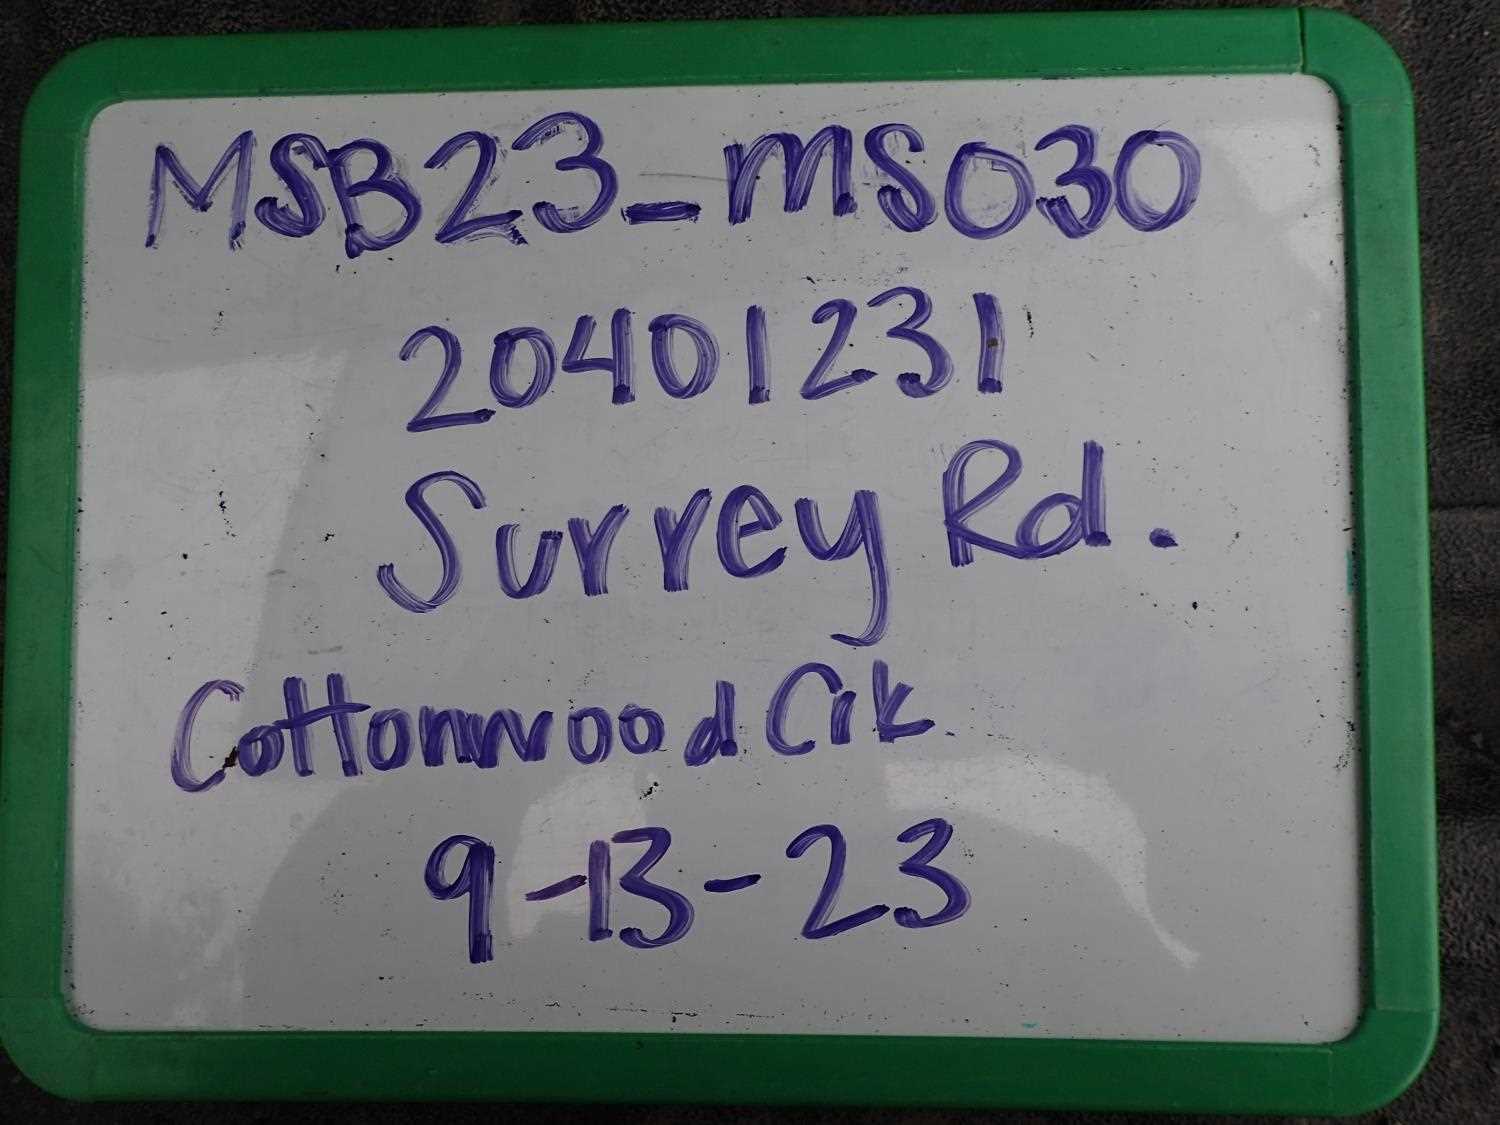 MSB23_MS030
20401231
Surrey Rd.
Cottonwood Crk.
9-13-23